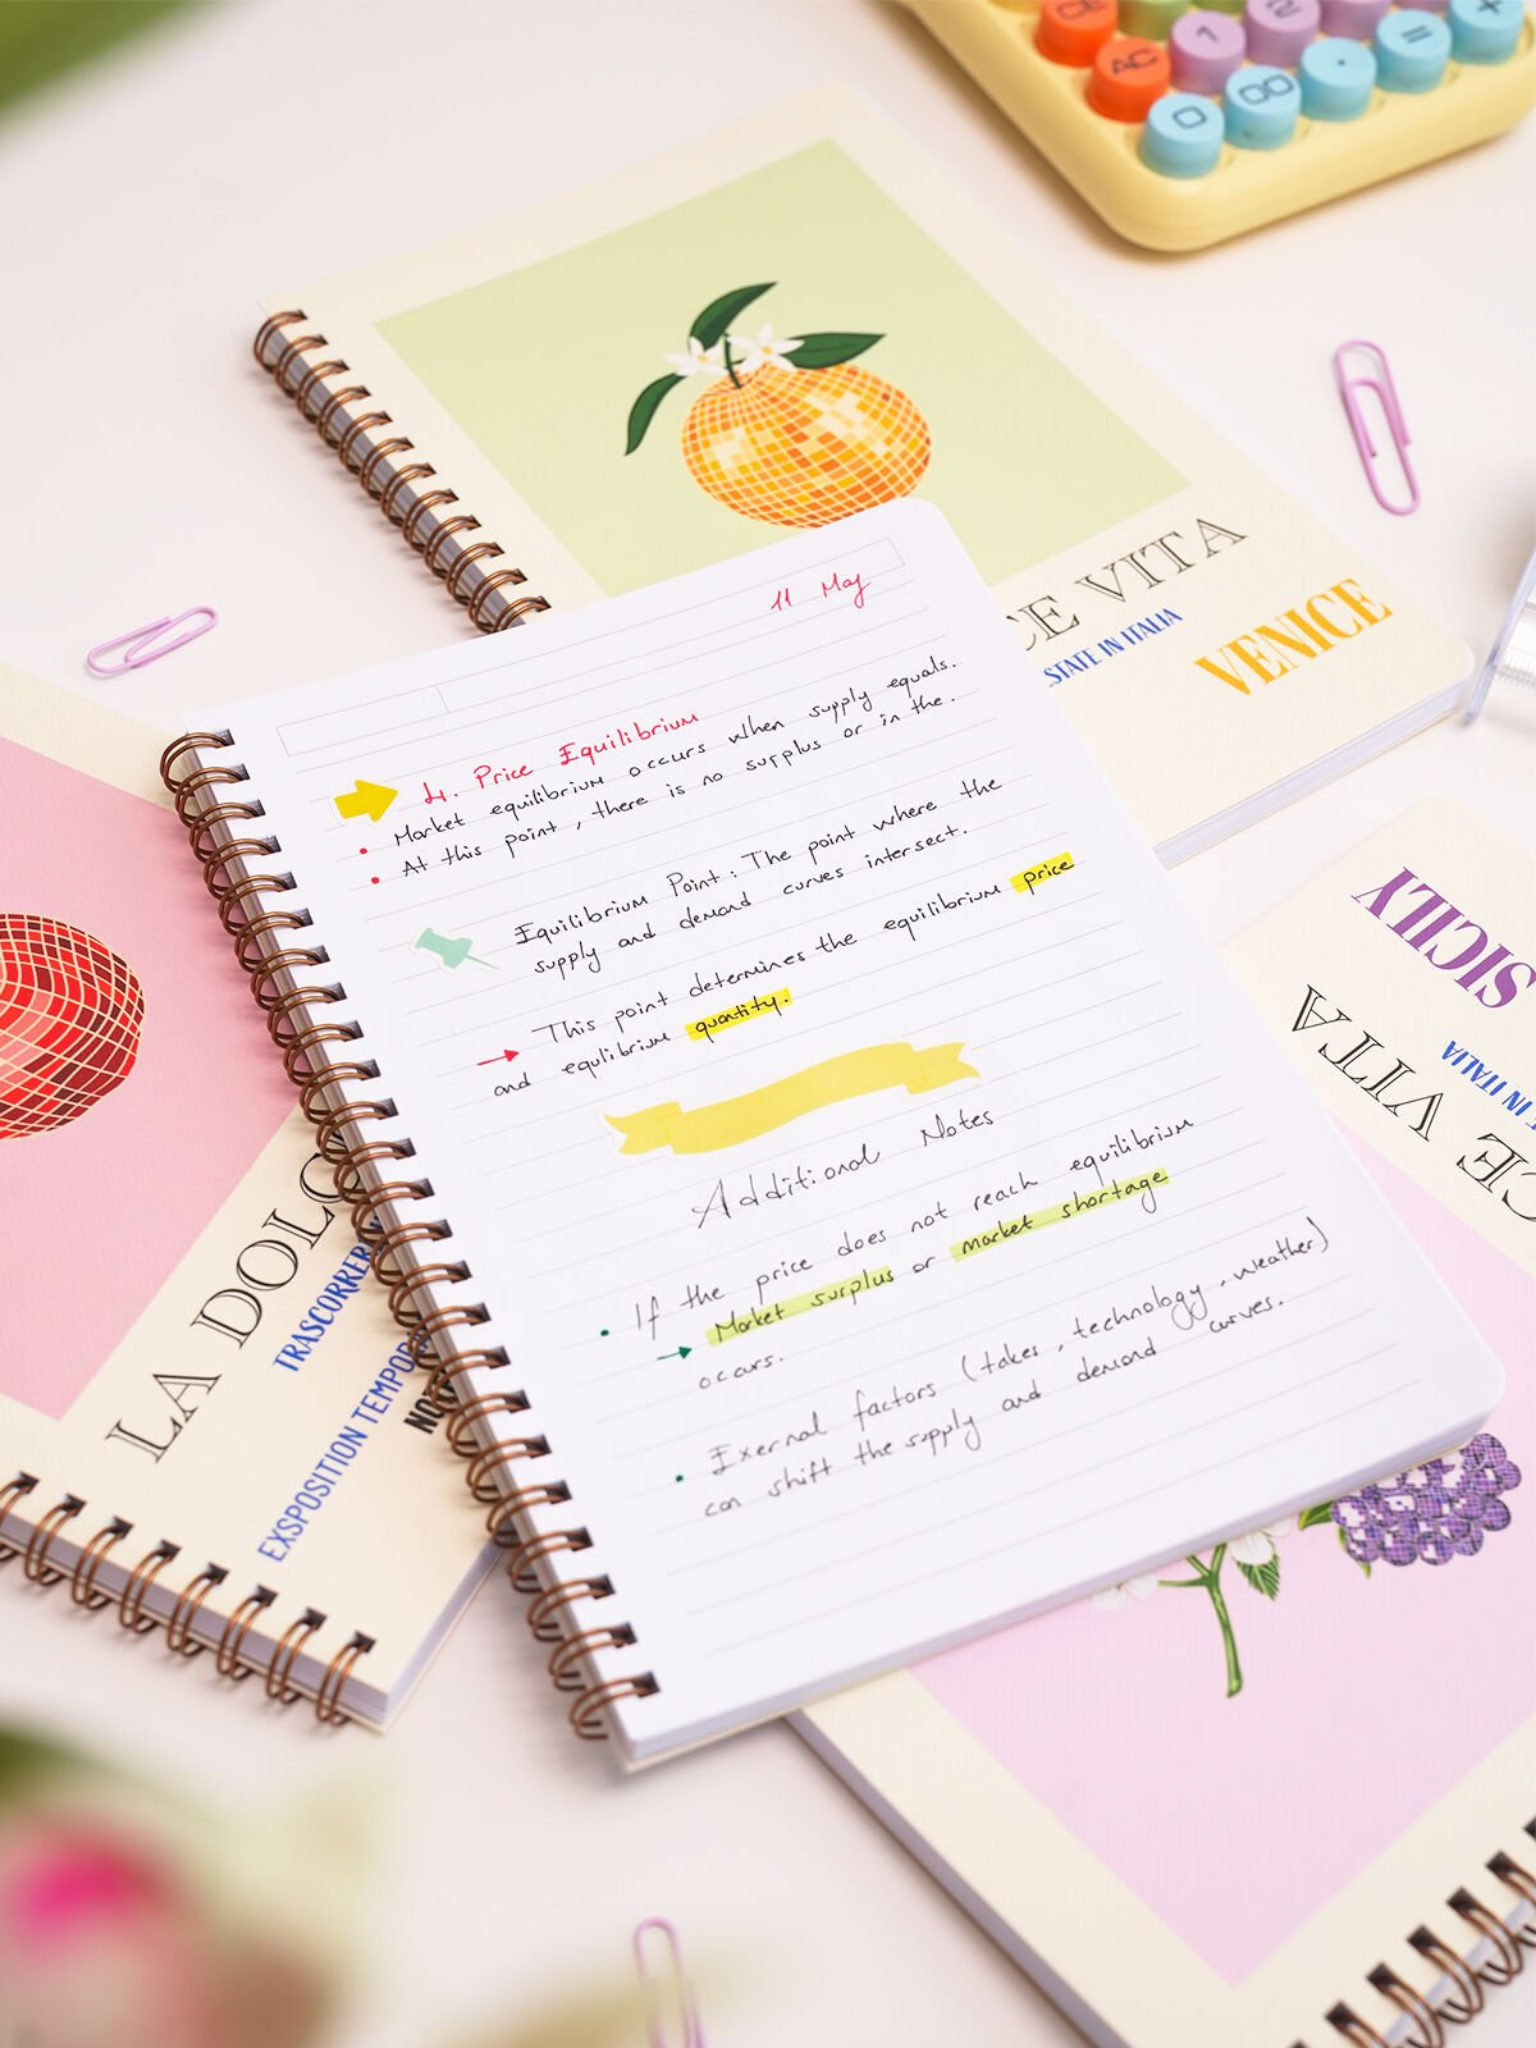 CE
AC
1
2
0
00
.
=
+
CE VITA
STATE IN ITALIA
VENICE
11 May
4. Price Equilibrium
• Market equilibrium occurs when supply equals.
• At this point, there is no surplus or in the.
Equilibrium Point: The point where the
supply and demand curves intersect.
→ This point determines the equilibrium price
and equlibrium quantity.
Additional Notes
• If the price does not reach equilibrium
→ Market surplus or market shortage
occurs.
• Exernal factors (takes, technology, weather)
can shift the supply and demand curves.
LA DOLC
TRASCORRER
EXSPOSITION TEMPOR
NO
SICILY
IN ITALIA
CE VITA